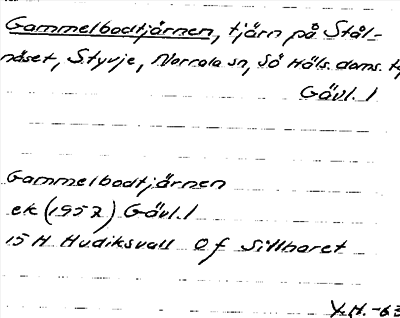 Gammelbodtjärnen, tjärn på Stål-
näset, Styvje, Norrala sn, Sö Häls. doms. t
Gävl. l
Gammelbodtjärnen
ek (1957) Gävl. l
15 H Hudiksvall 0 f Sillharet
Y.H. -63